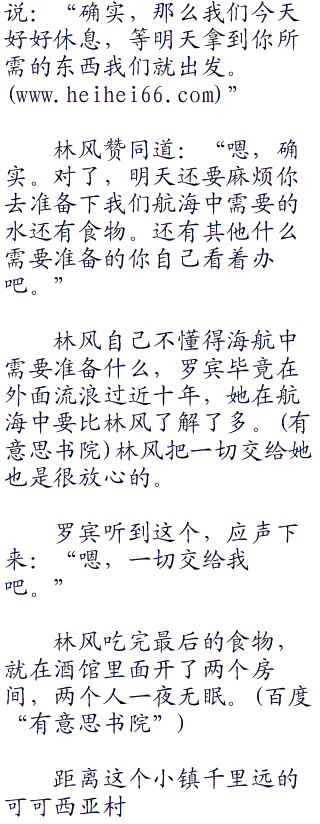 说：“确实，那么我们今天
好好休息，等明天拿到你所
需的东西我们就出发。
(www.heihei66.com)”
林风赞同道：“嗯，确
实。对了，明天还要麻烦你
去准备下我们航海中需要的
水还有食物。还有其他什么
需要准备的你自己看着办
吧。”
林风自己不懂得海航中
需要准备什么，罗宾毕竟在
外面流浪过近十年，她在航
海中要比林风了解了多。(有
意思书院)林风把一切交给她
也是很放心的。
罗宾听到这个，应声下
来：“嗯，一切交给我
吧。”
林风吃完最后的食物，
就在酒馆里面开了两个房
间，两个人一夜无眠。(百度
“有意思书院”)
距离这个小镇千里远的
可可西亚村